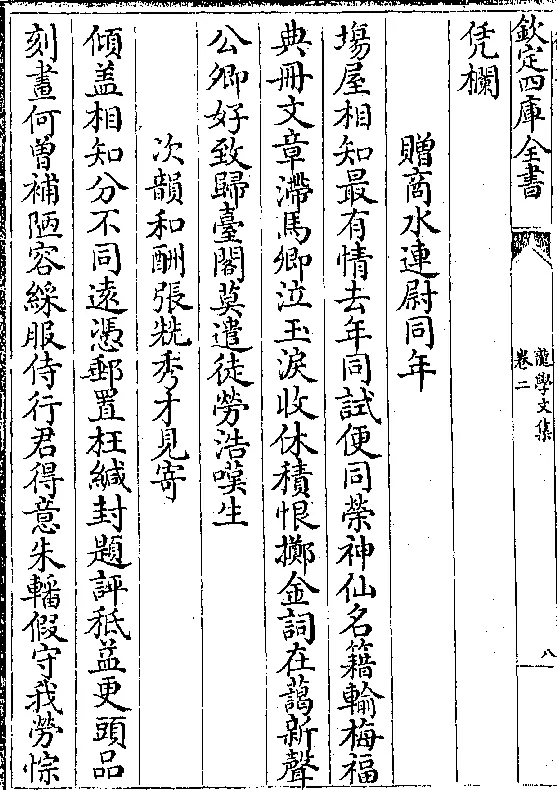 欽定四庫全書
龍學文集
卷二
八
凭欄
贈商水連尉同年
塲屋相知最有情去年同試便同榮神仙名籍輸梅福
典冊文章滯馬卿泣玉淚收休積恨擲金詞在藹新聲
公卿好致歸臺閣莫遣徒勞浩嘆生
次韻和酬張兟秀才見寄
傾盖相知分不同遠憑郵置枉緘封題評秪益更頭品
刻畫何曽補陋容綵服侍行君得意朱轓假守我勞悰